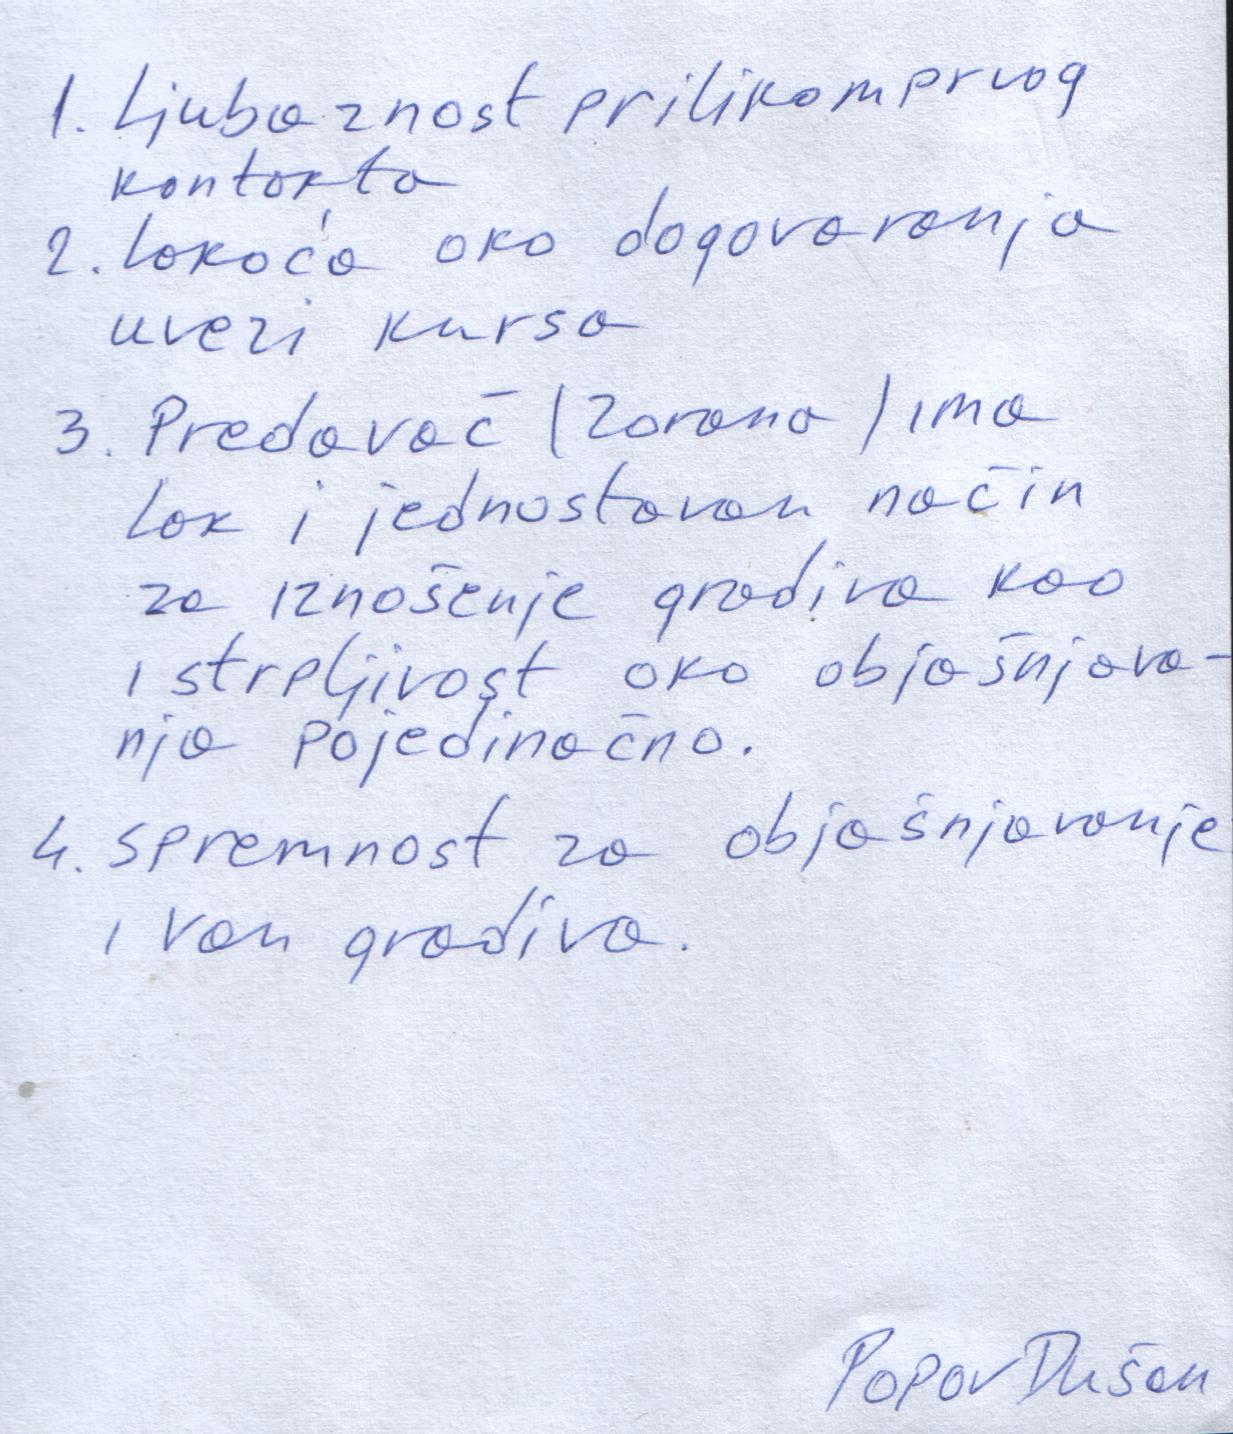 1. Ljubaznost prilikom prvog
kontakta
2. Lakoća oko dogovaranja
uvezi kursa
3. Predavač (Zorana) ima
lak i jednostavan način
za iznošenje gradiva kao
i strpljivost oko objašnjava-
nja pojedinačno.
4. spremnost za objašnjavanje
i van gradiva.
Popov Dušan